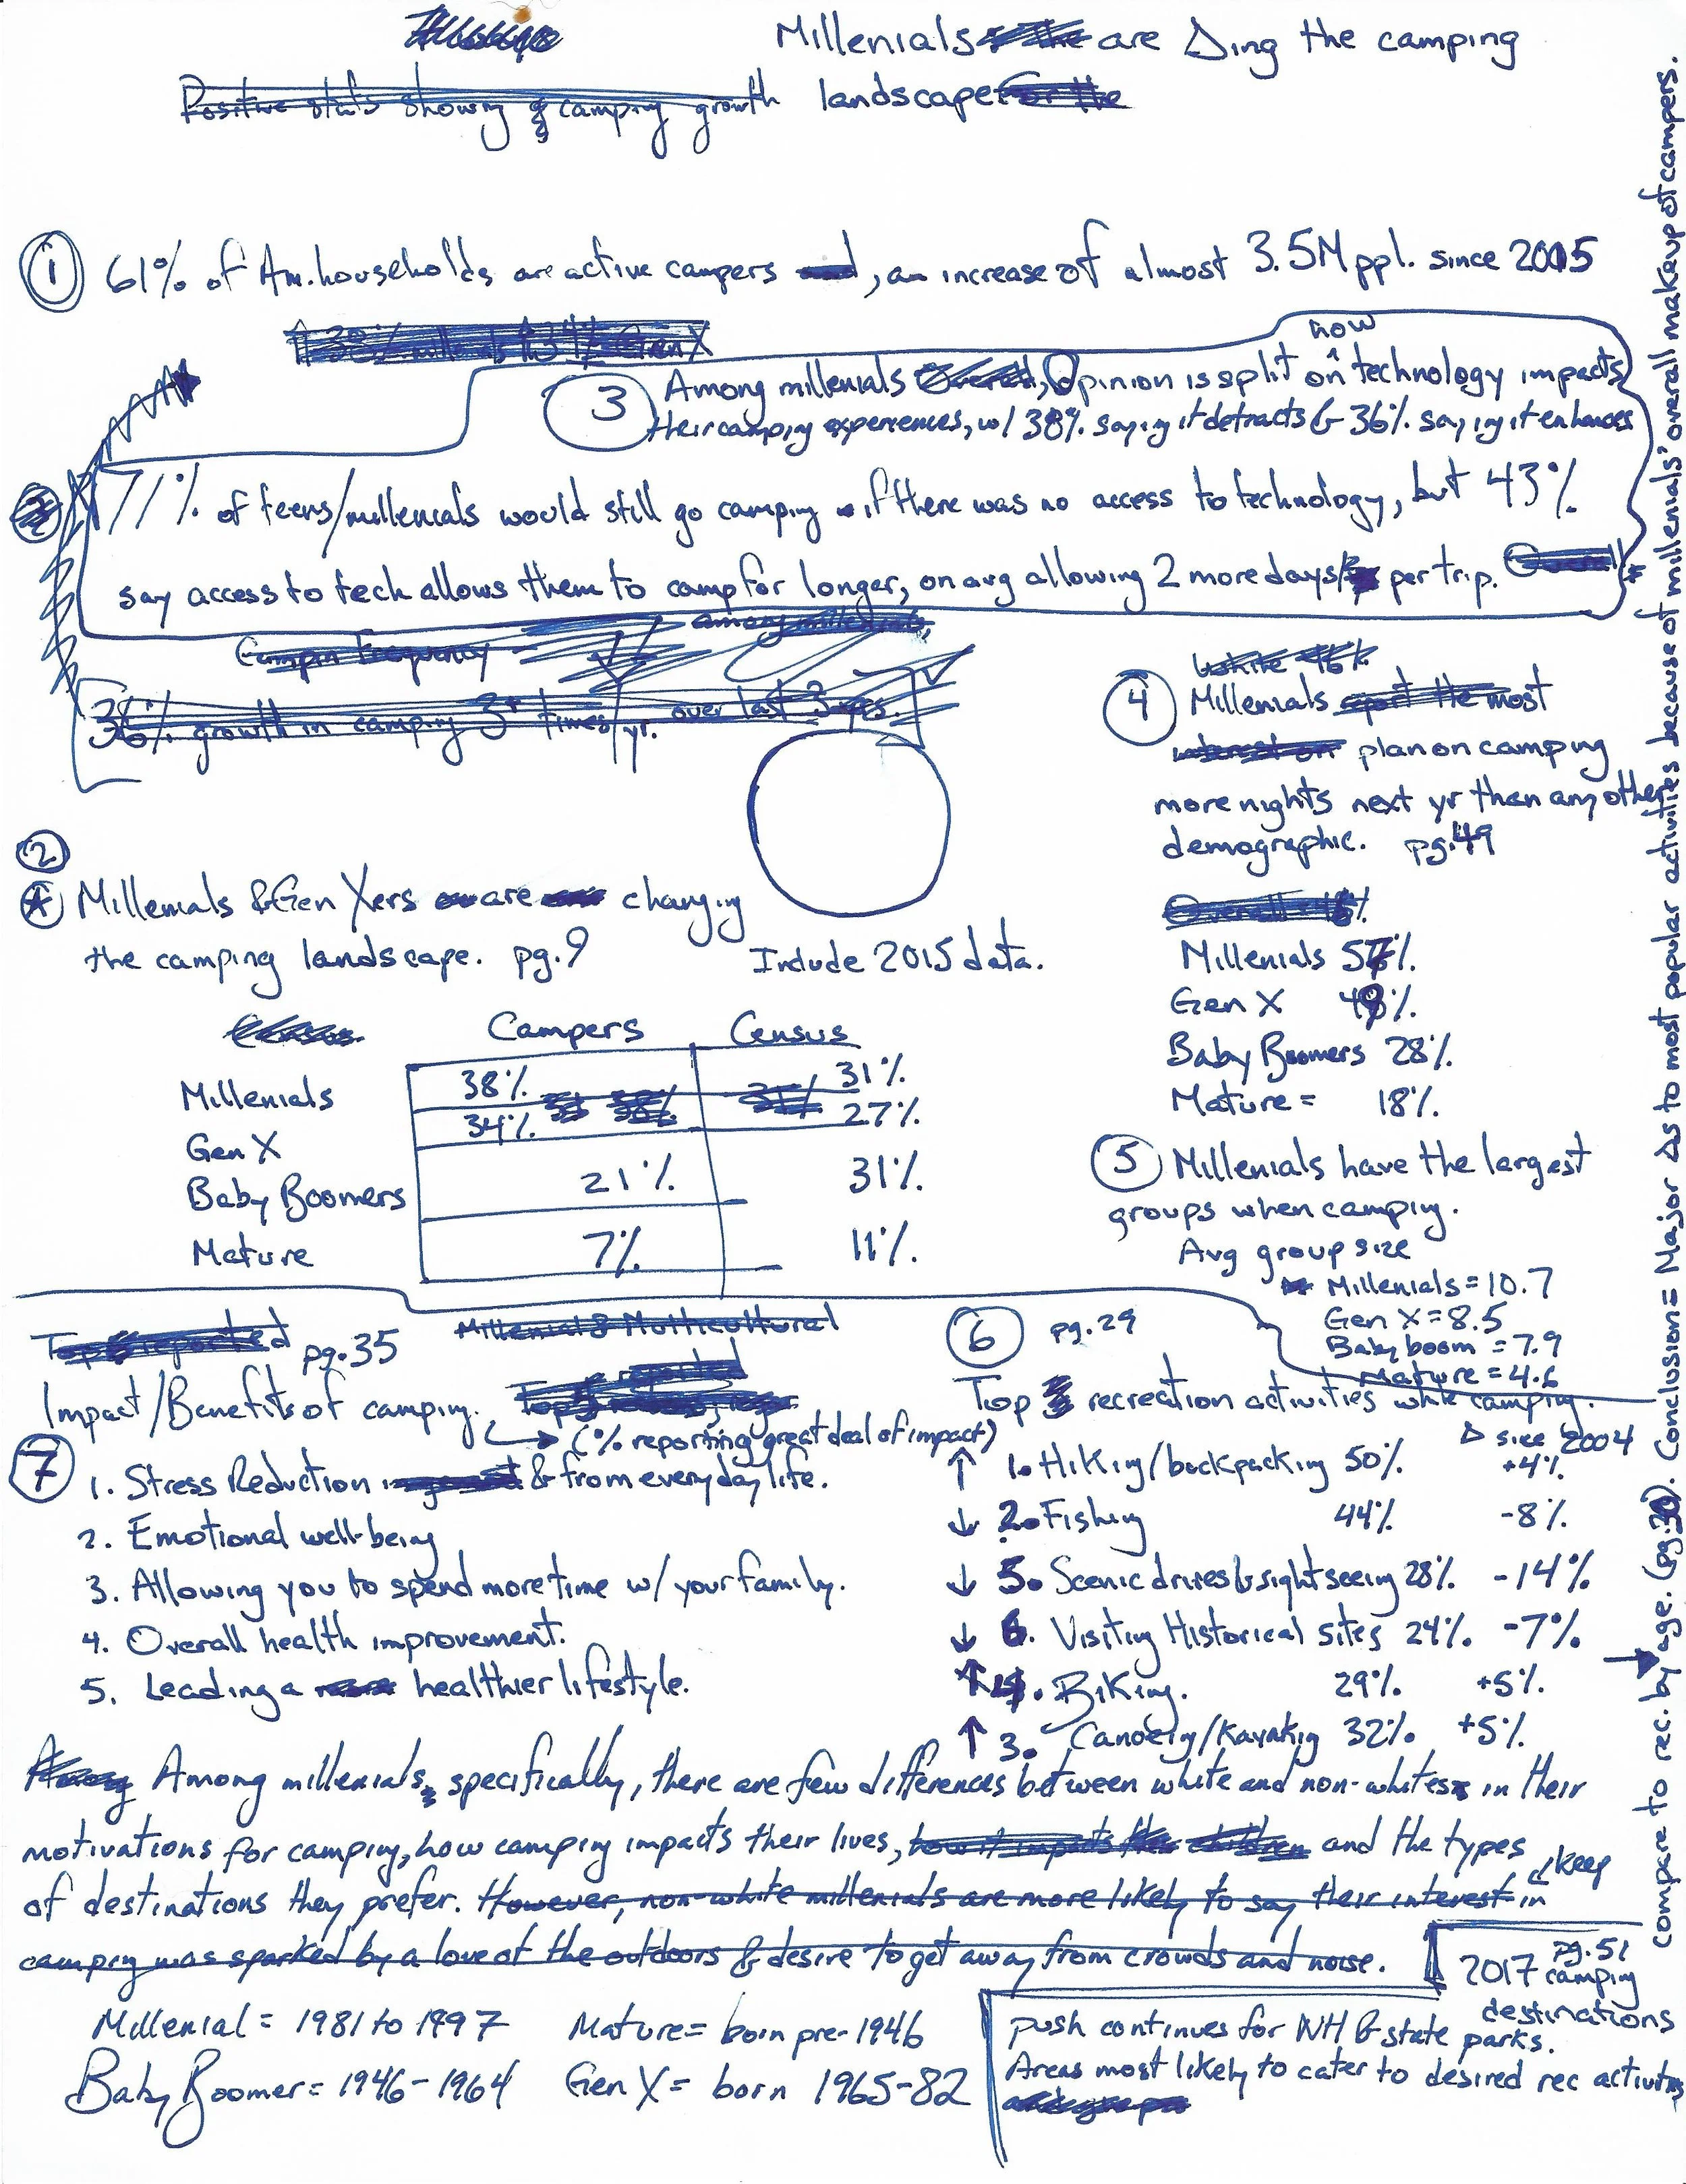 Millenials are Δing the camping
landscape
Positive stats showing camping growth
① 61% of Am. households are active campers, an increase of almost 3.5M ppl. since 2015
③ Among millenials, Opinion is split on how technology impacts
their camping experiences, w/ 38% saying it detracts & 36% saying it enhances
71% of teens/millenials would still go camping if there was no access to technology, but 43%
say access to tech allows them to camp for longer, on avg allowing 2 more days per trip.
among millenials,
Campin frequency
36% growth in camping 3+ times/yr. over last 3 yrs.
②
Millenials & Gen Xers are changing
the camping landscape. pg. 9
Include 2015 data.
Campers Census
Millenials 38% 31%
Gen X 34% 27%
Baby Boomers 21% 31%
Mature 7% 11%
White 46%
④ Millenials report the most
interest on plan on camping
more nights next yr than any other
demographic. pg. 49
Millenials
Gen X
Baby Boomers 28%
Mature = 18%
⑤ Millenials have the largest
groups when camping.
Avg group size
Millenials = 10.7
Gen X = 8.5
Baby boom = 7.9
Mature = 4.6
Top 5 reported pg. 35
Millenial & Multicultural
Impact/Benefits of camping.
(% reporting great deal of impact)
⑦ 1. Stress Reduction & from everyday life.
2. Emotional well-being
3. Allowing you to spend more time w/ your family.
4. Overall health improvement.
5. Leading a healthier lifestyle.
⑥ pg. 29
Top recreation activities while camping.
Δ since 2004
↑ 1. Hiking/backpacking 50% +4%
↓ 2. Fishing 44% -8%
↓ 5. Scenic drives & sight seeing 28% -14%
↓ 6. Visiting Historical sites 24% -7%
↑ 4. Biking. 29% +5%
↑ 3. Canoeing/Kayaking 32% +5%
Among millenials, specifically, there are few differences between white and non-whites in their
motivations for camping, how camping impacts their lives, how it impacts their children and the types
of destinations they prefer. However, non-white millenials are more likely to say their interest in keep
camping was sparked by a love of the outdoors & desire to get away from crowds and noise.
Millenial = 1981 to 1997 Mature = born pre-1946
Baby Boomer = 1946-1964 Gen X = born 1965-82
pg. 51
2017 camping
destinations
push continues for NH & state parks.
Areas most likely to cater to desired rec activities
compare to rec. by age. (pg. 30). Conclusion = Major Δs to most popular activities because of millenials' overall makeup of campers.